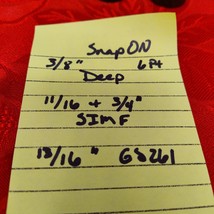 SnapON
3/8" 6Pt
Deep
11/16 + 3/4"
SIMF
13/16" GS261